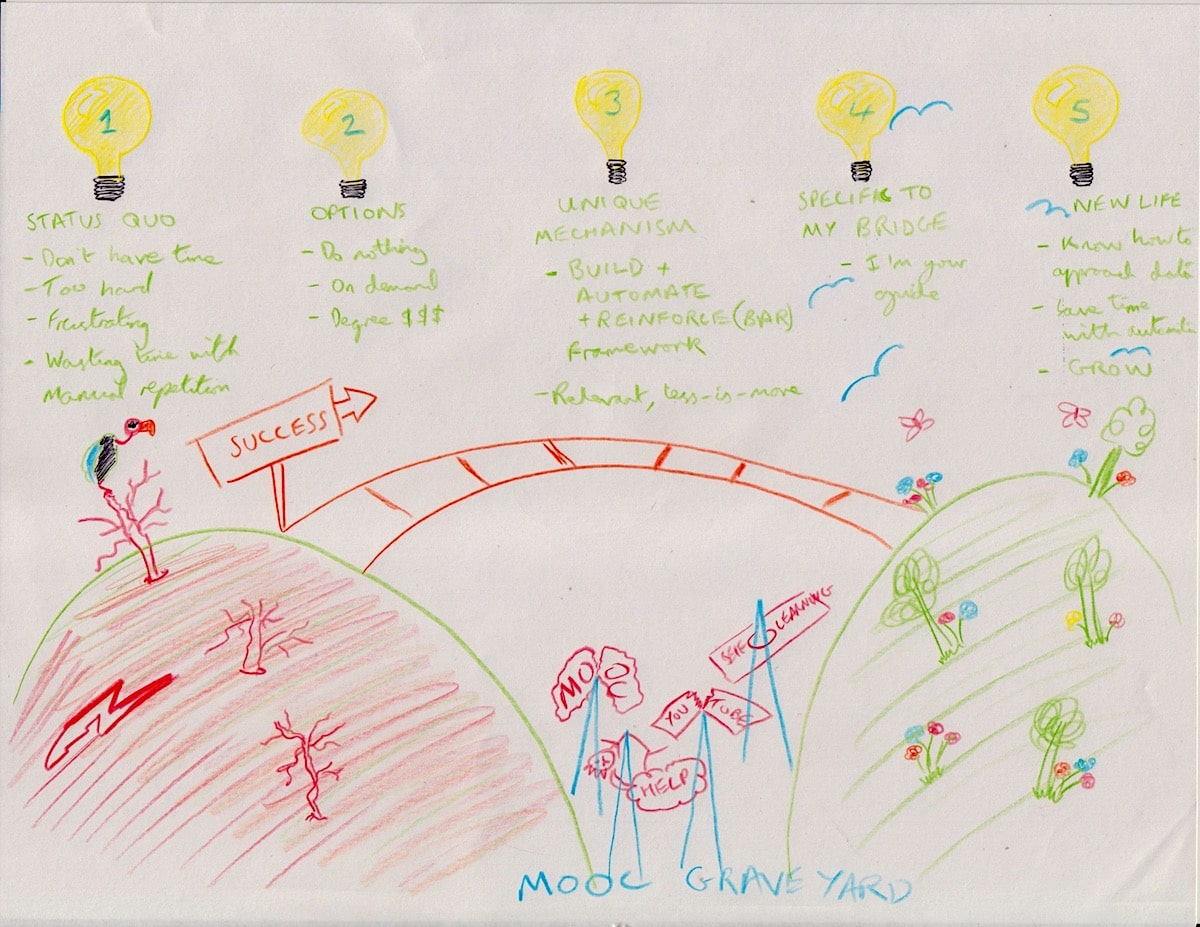 1
STATUS QUO
- Don't have time
- Too hard
- Frustrating
- Wasting time with
Manual repetition
2
OPTIONS
- Do nothing
- On demand
- Degree $$$
3
UNIQUE
MECHANISM
- BUILD +
AUTOMATE
+ REINFORCE (BAR)
Framework
- Relevant, less-is-more
4
SPECIFIC TO
MY BRIDGE
- I'm your
guide
5
NEW LIFE
- Know how to
approach data
- Save time
with automatio
- GROW
SUCCESS
MOOC
YOU TUBE
SELF LEARNING
HELP
MOOC GRAVEYARD